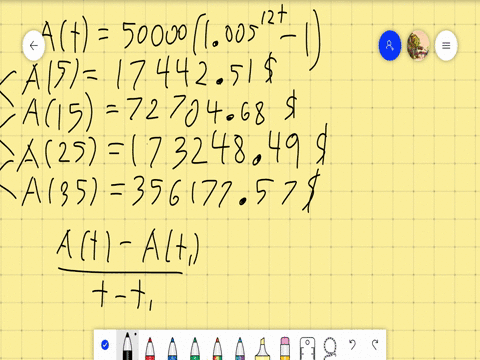 A(t) = 50000(1.005^12t - 1)
A(5) = 17442.51$
A(15) = 72704.68 $
A(25) = 173248.49 $
A(35) = 356177.57$
A(t) - A(t₁)
t - t₁